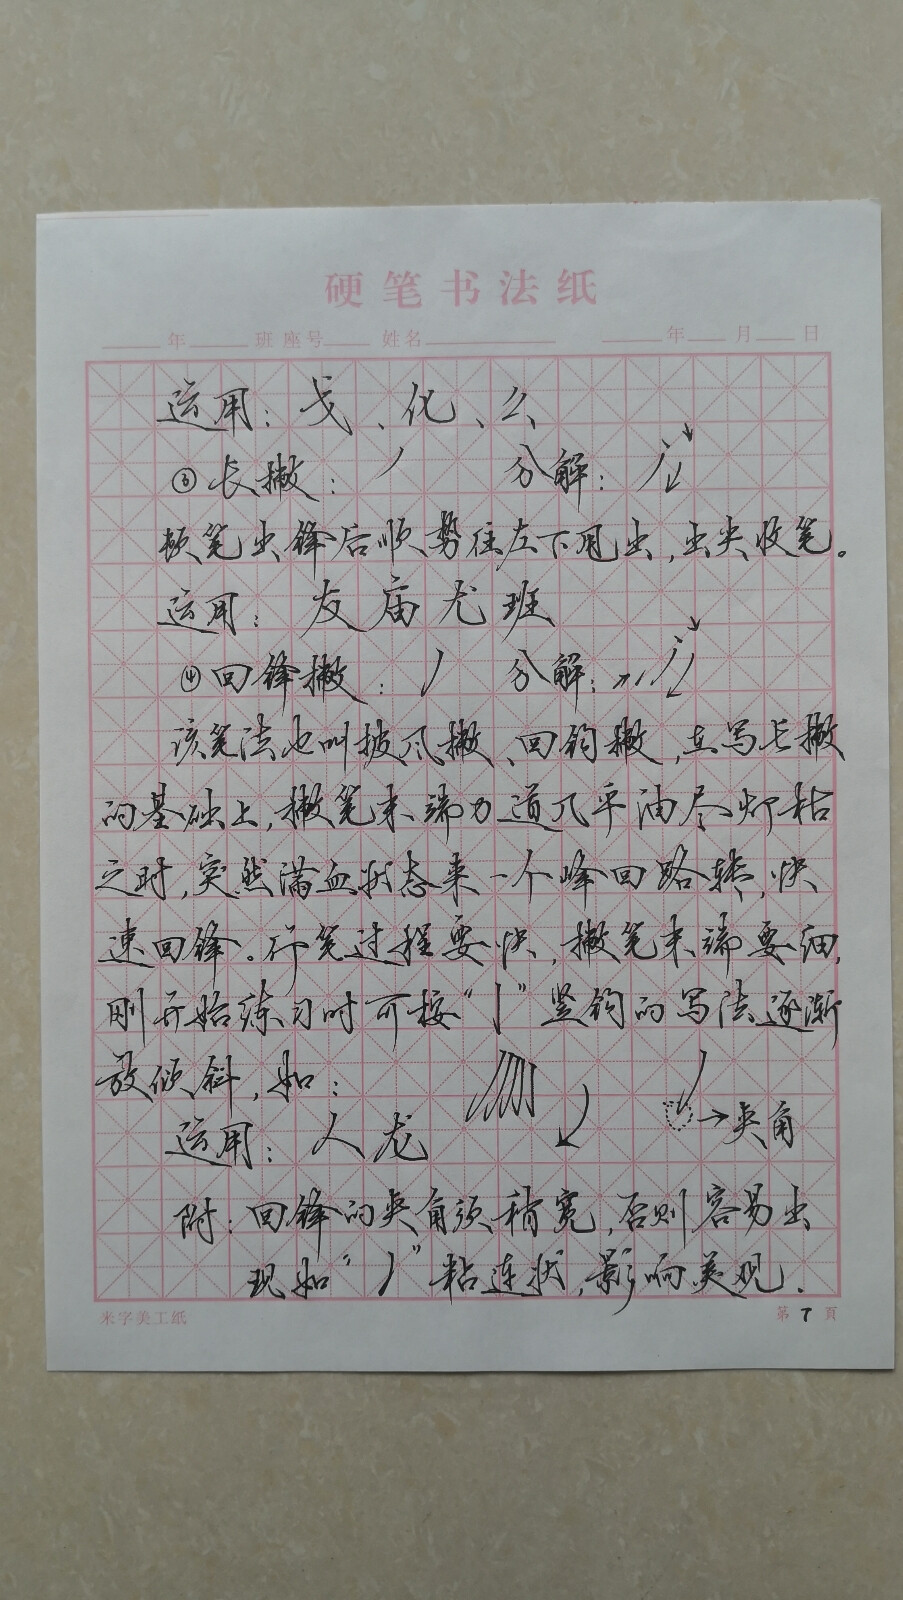 硬笔书法纸
年 班 座号 姓名 年 月 日
运用：戈、化、么
③长撇：丿 分解：
顿笔出锋后顺势往左下甩出，出尖收笔。
运用：友庙尤班
④回锋撇：丿 分解：
该笔法也叫披尺撇、回钩撇，在写长撇
的基础上，撇笔末端力道几乎油尽灯枯
之时，突然满血状态来一个峰回路转，快
速回锋。行笔过程要快，撇笔末端要细，
刚开始练习时可按“亅”竖钩的写法逐渐
放倾斜，如：
→夹角
运用：人龙
附：回锋的夹角须稍宽，否则容易出
现如“丿”粘连状，影响美观.
米字美工纸 第 7 頁